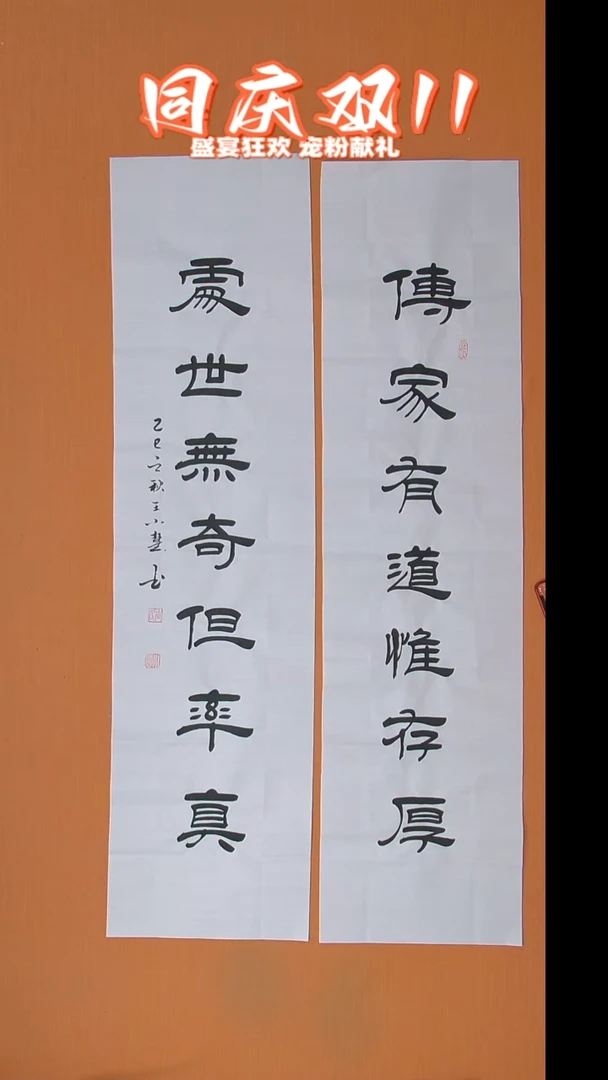 同庆双11
盛宴狂欢 宠粉献礼
傳家有道惟存厚
處世無奇但率真
乙巳立秋王小慧書